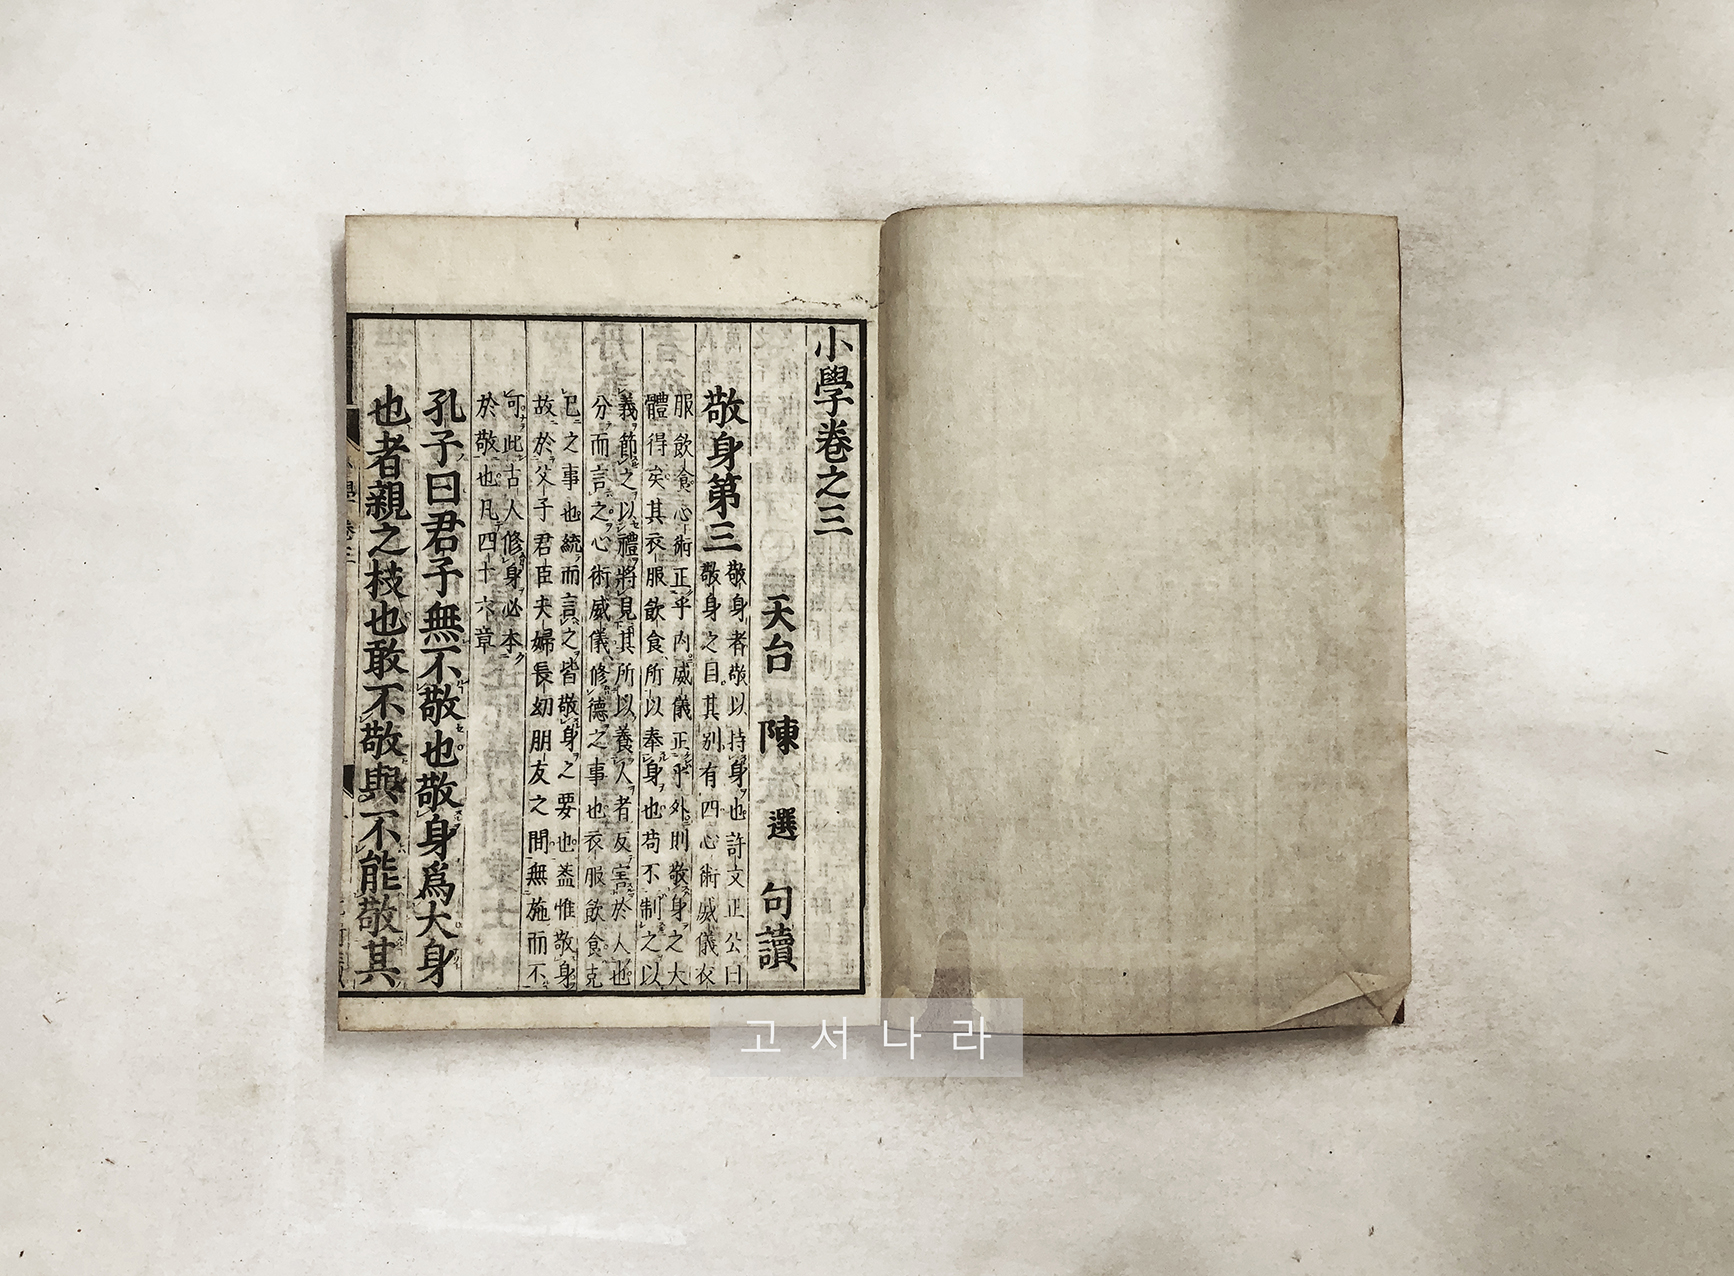 小學卷之三
天台 陳 選 句讀
敬身第三
敬身者敬以持身也許文正公曰
敬身之目其別有四心術威儀衣
服飮食心術正乎內威儀正乎外則敬身之大
體得矣其衣服飮食所以奉身也苟不制之以
義節之以禮將見其所以養人者反害於人也
分而言之心術威儀修德之事也衣服飮食克
已之事也統而言之皆敬身之要也盖惟敬身
故於父子君臣夫婦長幼朋友之間無施而不
可此古人修身必本
於敬也凡四十六章
孔子曰君子無不敬也敬身爲大身
也者親之枝也敢不敬與不能敬其
고서나라